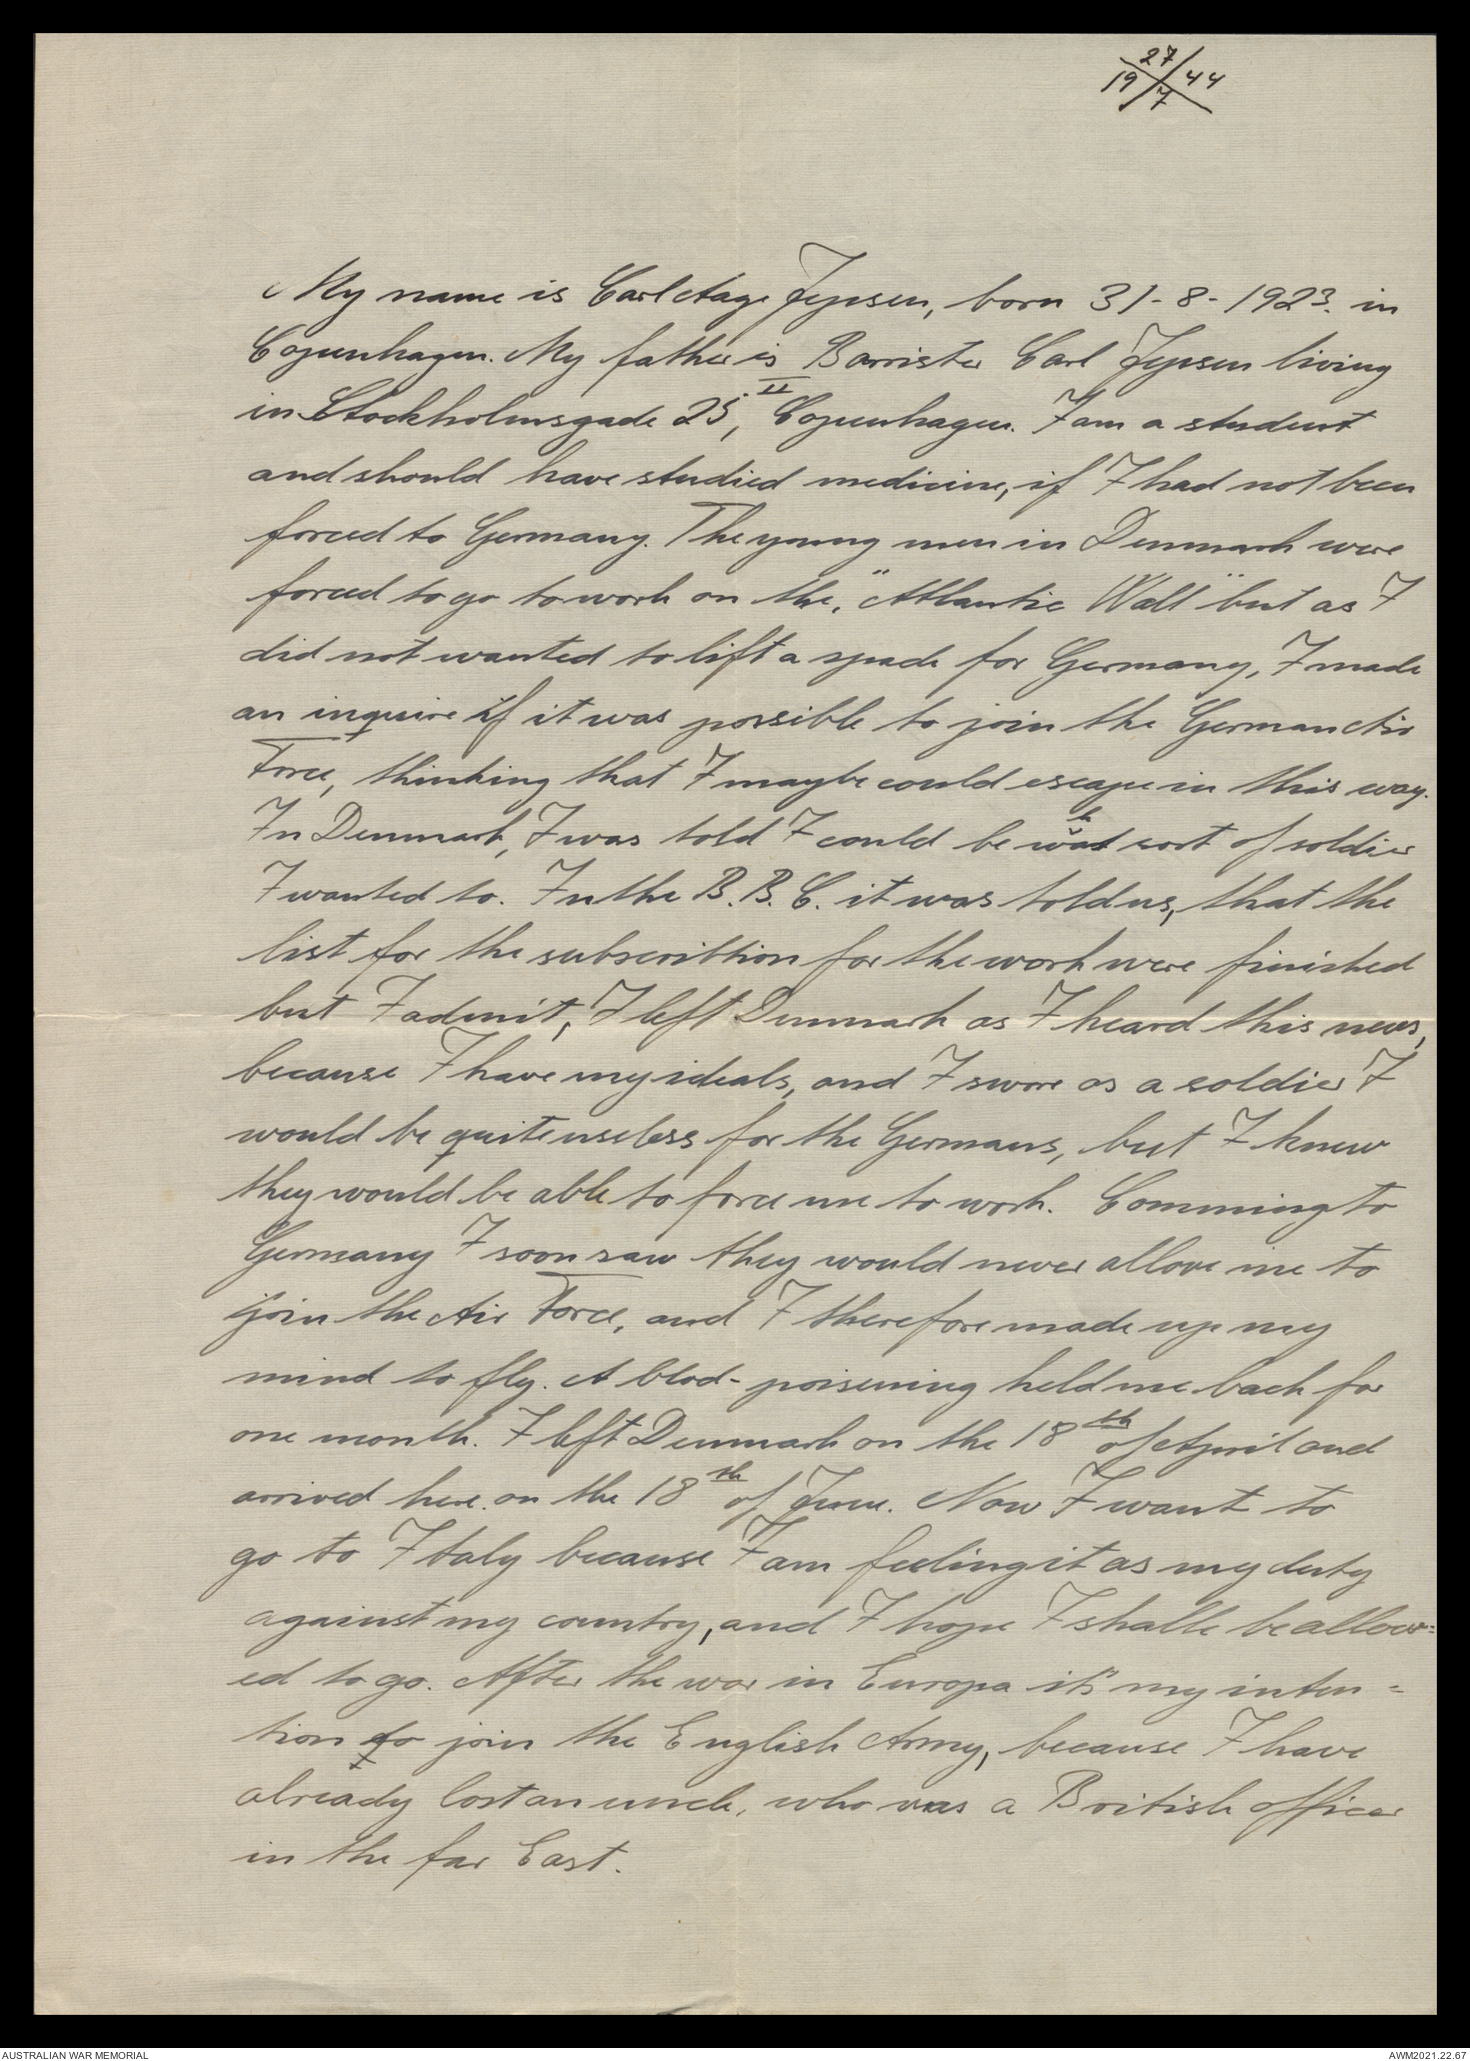 27
19 44
7
My name is Carl Aage Jepsen, born 31-8-1923. in
Copenhagen. My father is Barrister Carl Jepsen living
in Stockholmsgade 25, II Copenhagen. I am a student
and should have studied medicine, if I had not been
forced to Germany. The young men in Denmark were
forced to go to work on the, "Atlantic Wall" but as I
did not wanted to lift a spade for Germany, I made
an inquire if it was possible to join the German Air
Force, thinking that I maybe could escape in this way.
In Denmark, I was told I could be what sort of soldier
I wanted to. In the B.B.C. it was told us, that the
list for the subscribtion for the work were finished
but I admit, I left Denmark as I heard this news,
because I have my ideals, and I swore as a soldier I
would be quite useless for the Germans, but I knew
they would be able to force me to work. Comming to
Germany I soon saw they would never allove me to
join the Air Force, and I therefore made up my
mind to fly. A blod-poisening held me back for
one month. I left Denmark on the 18th of April and
arrived here on the 18th of June. Now I want to
go to Italy because I am feeling it as my duty
against my country, and I hope I shalle be allow=
ed to go. After the war in Europa it's my inten=
tion to join the English Army, because I have
already lost an uncle, who was a British officer
in the far East.
AUSTRALIAN WAR MEMORIAL
AWM2021.22.67